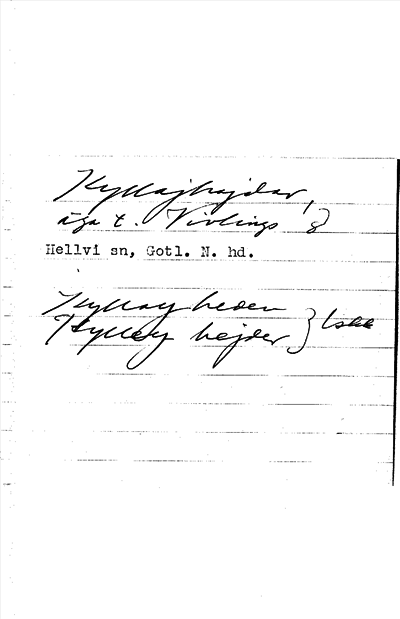 Kyllajhajdar,
äga t. Nivlings 8
Hellvi sn, Gotl. N. hd.
Kyllay heden
Kylley hejder }